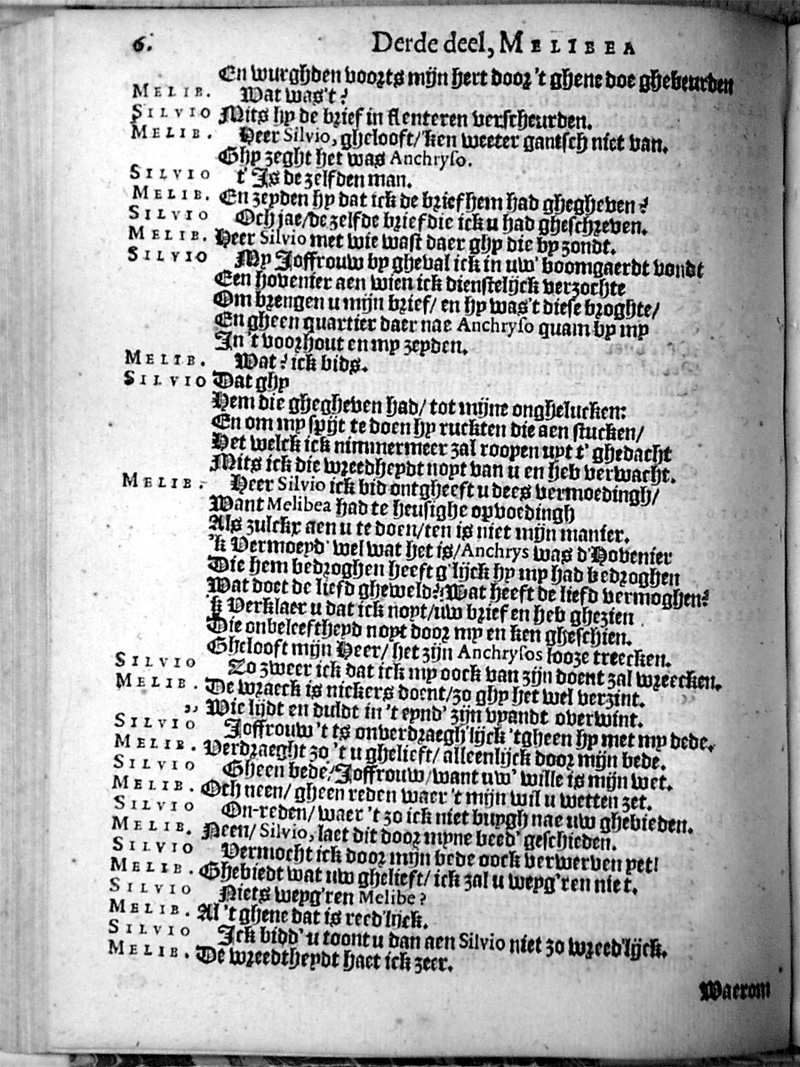 6. Derde deel, MELIBEA
En wurghden voorts mijn hert door 't ghene doe ghebeurden
MELIB. Wat was't?
SILVIO Mits hy de brief in flenteren verscheurden.
MELIB. Heer Silvio, ghelooft/'ken weeter gantsch niet van.
Ghy zeght het was Anchryso.
SILVIO t' Is de zelfden man.
MELIB. En zeyden hy dat ick de brief hem had ghegheven?
SILVIO Och jae/de zelfde brief die ick u had gheschreven.
MELIB. Heer Silvio met wie wast daer ghy die by zondt.
SILVIO My Joffrouw by gheval ick in uw' boomgaerdt vondt
Een hovenier aen wien ick dienstelijck verzochte
Om brengen u mijn brief/ en hy was't diese broghte/
En gheen quartier daer nae Anchryso quam by my
In 't voorhout en my zeyden.
MELIB. Wat? ick bids.
SILVIO Dat ghy
Hem die ghegheven had/ tot mijne onghelucken:
En om my spijt te doen hy ruckten die aen stucken/
Het welck ick nimmermeer zal roopen uyt t' ghedacht
Mits ick die wreedheydt noyt van u en heb verwacht.
MELIB. Heer Silvio ick bid ontgheeft u dees vermoedingh/
Want Melibea had te heusighe opvoedingh
Als zulckx aen u te doen/ten is niet mijn manier.
'k Vermoeyd' wel wat het is/Anchrys was d'Hovenier
Die hem bedroghen heeft g'lijck hy my had bedroghen
Wat doet de liefd gheweld? Wat heeft de liefd vermoghen?
'k Verklaer u dat ick noyt/uw brief en heb ghezien
Die onbeleeftheyd noyt door my en ken gheschien.
Ghelooft mijn Heer/ het zijn Anchrysos looze treecken.
SILVIO Zo zweer ick dat ick my oock van zijn doent zal wreecken.
MELIB. De wraeck is nickers doent/zo ghy het wel verzint.
,, Wie lijdt en duldt in 't eynd' zijn vyandt overwint.
SILVIO Joffrouw 't ts onverdraegh'lijck 'tgheen hy met my dede.
MELIB. Verdraeght zo 't u ghelieft/ alleenlijck door mijn bede.
SILVIO Gheen bede/Joffrouw/want uw' wille is mijn wet.
MELIB. Och neen/ gheen reden waer 't mijn wil u wetten zet.
SILVIO On-reden/ waer 't zo ick niet buygh nae uw ghebieden.
MELIB. Neen/ Silvio, laet dit door myne beed' geschieden.
SILVIO Vermocht ick door mijn bede oock verwerven yet!
MELIB. Ghebiedt wat uw ghelieft/ ick zal u weyg'ren niet.
SILVIO Niets weyg'ren Melibe?
MELIB. Al 't ghene dat is reed'lijck.
SILVIO Ick bidd' u toont u dan aen Silvio niet zo wreed'lijck.
MELIB. De wreedtheydt haet ick zeer.
Waerom